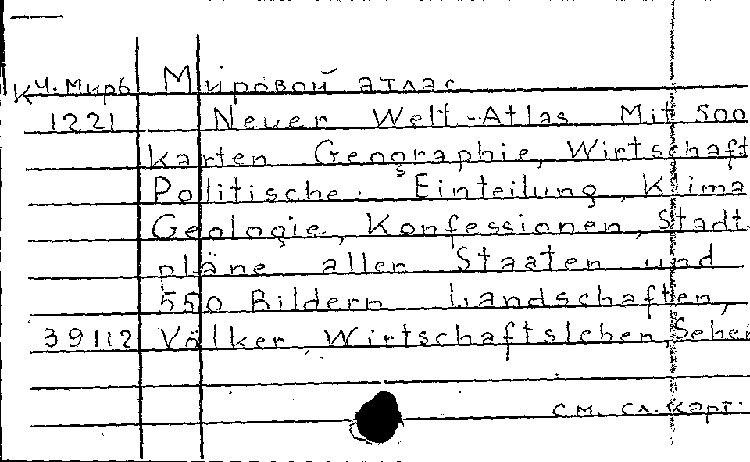 К Ч. Миръ Мировой атлас
1221 Neuer Welt-Atlas Mit 500
karten Geographie, Wirtschaft
Politische. Einteilung, Klima
Geologie, Konfessionen, Stadt
pläne aller Staaten und
550 Bildern Landschaften,
39112 Völker, Wirtschaftsleben, Sehe
см. сл. карт.